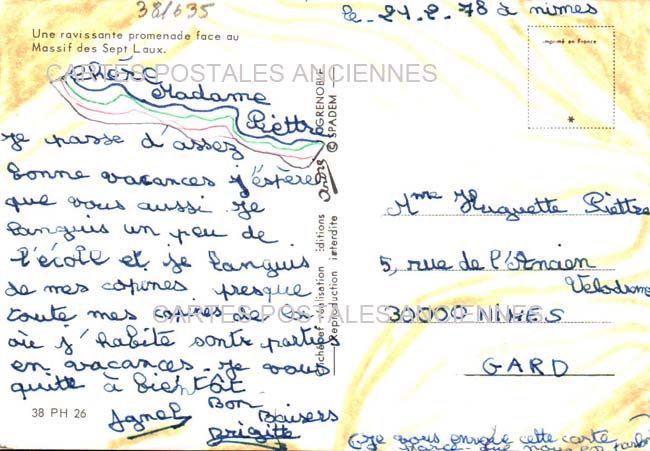 38/635
le 21-2-78 à nimes
Une ravissante promenade face au
Massif des Sept Laux.
imprimé en France
*
CARTES POSTALES ANCIENNES
chère
Madame
Piettre
je passe d'assez
bonne vacances j'éspère
que vous aussi. je
languis un peu de
l'école et je languis
de mes copines presque
toute mes copines de
où j'habite sont parties
en vacances. je vous
quitte à bientôt
Bon
Baisers
Agnel
Brigitte
38 PH 26
éditions andré GRENOBLE
Reproduction interdite © SPADEM
Mme Huguette Piettre
5, rue de l'Ancien
Velodrome
30000 NIMES
GARD
CARTES POSTALES ANCIENNES
je vous envoie cette carte
parce que nous en